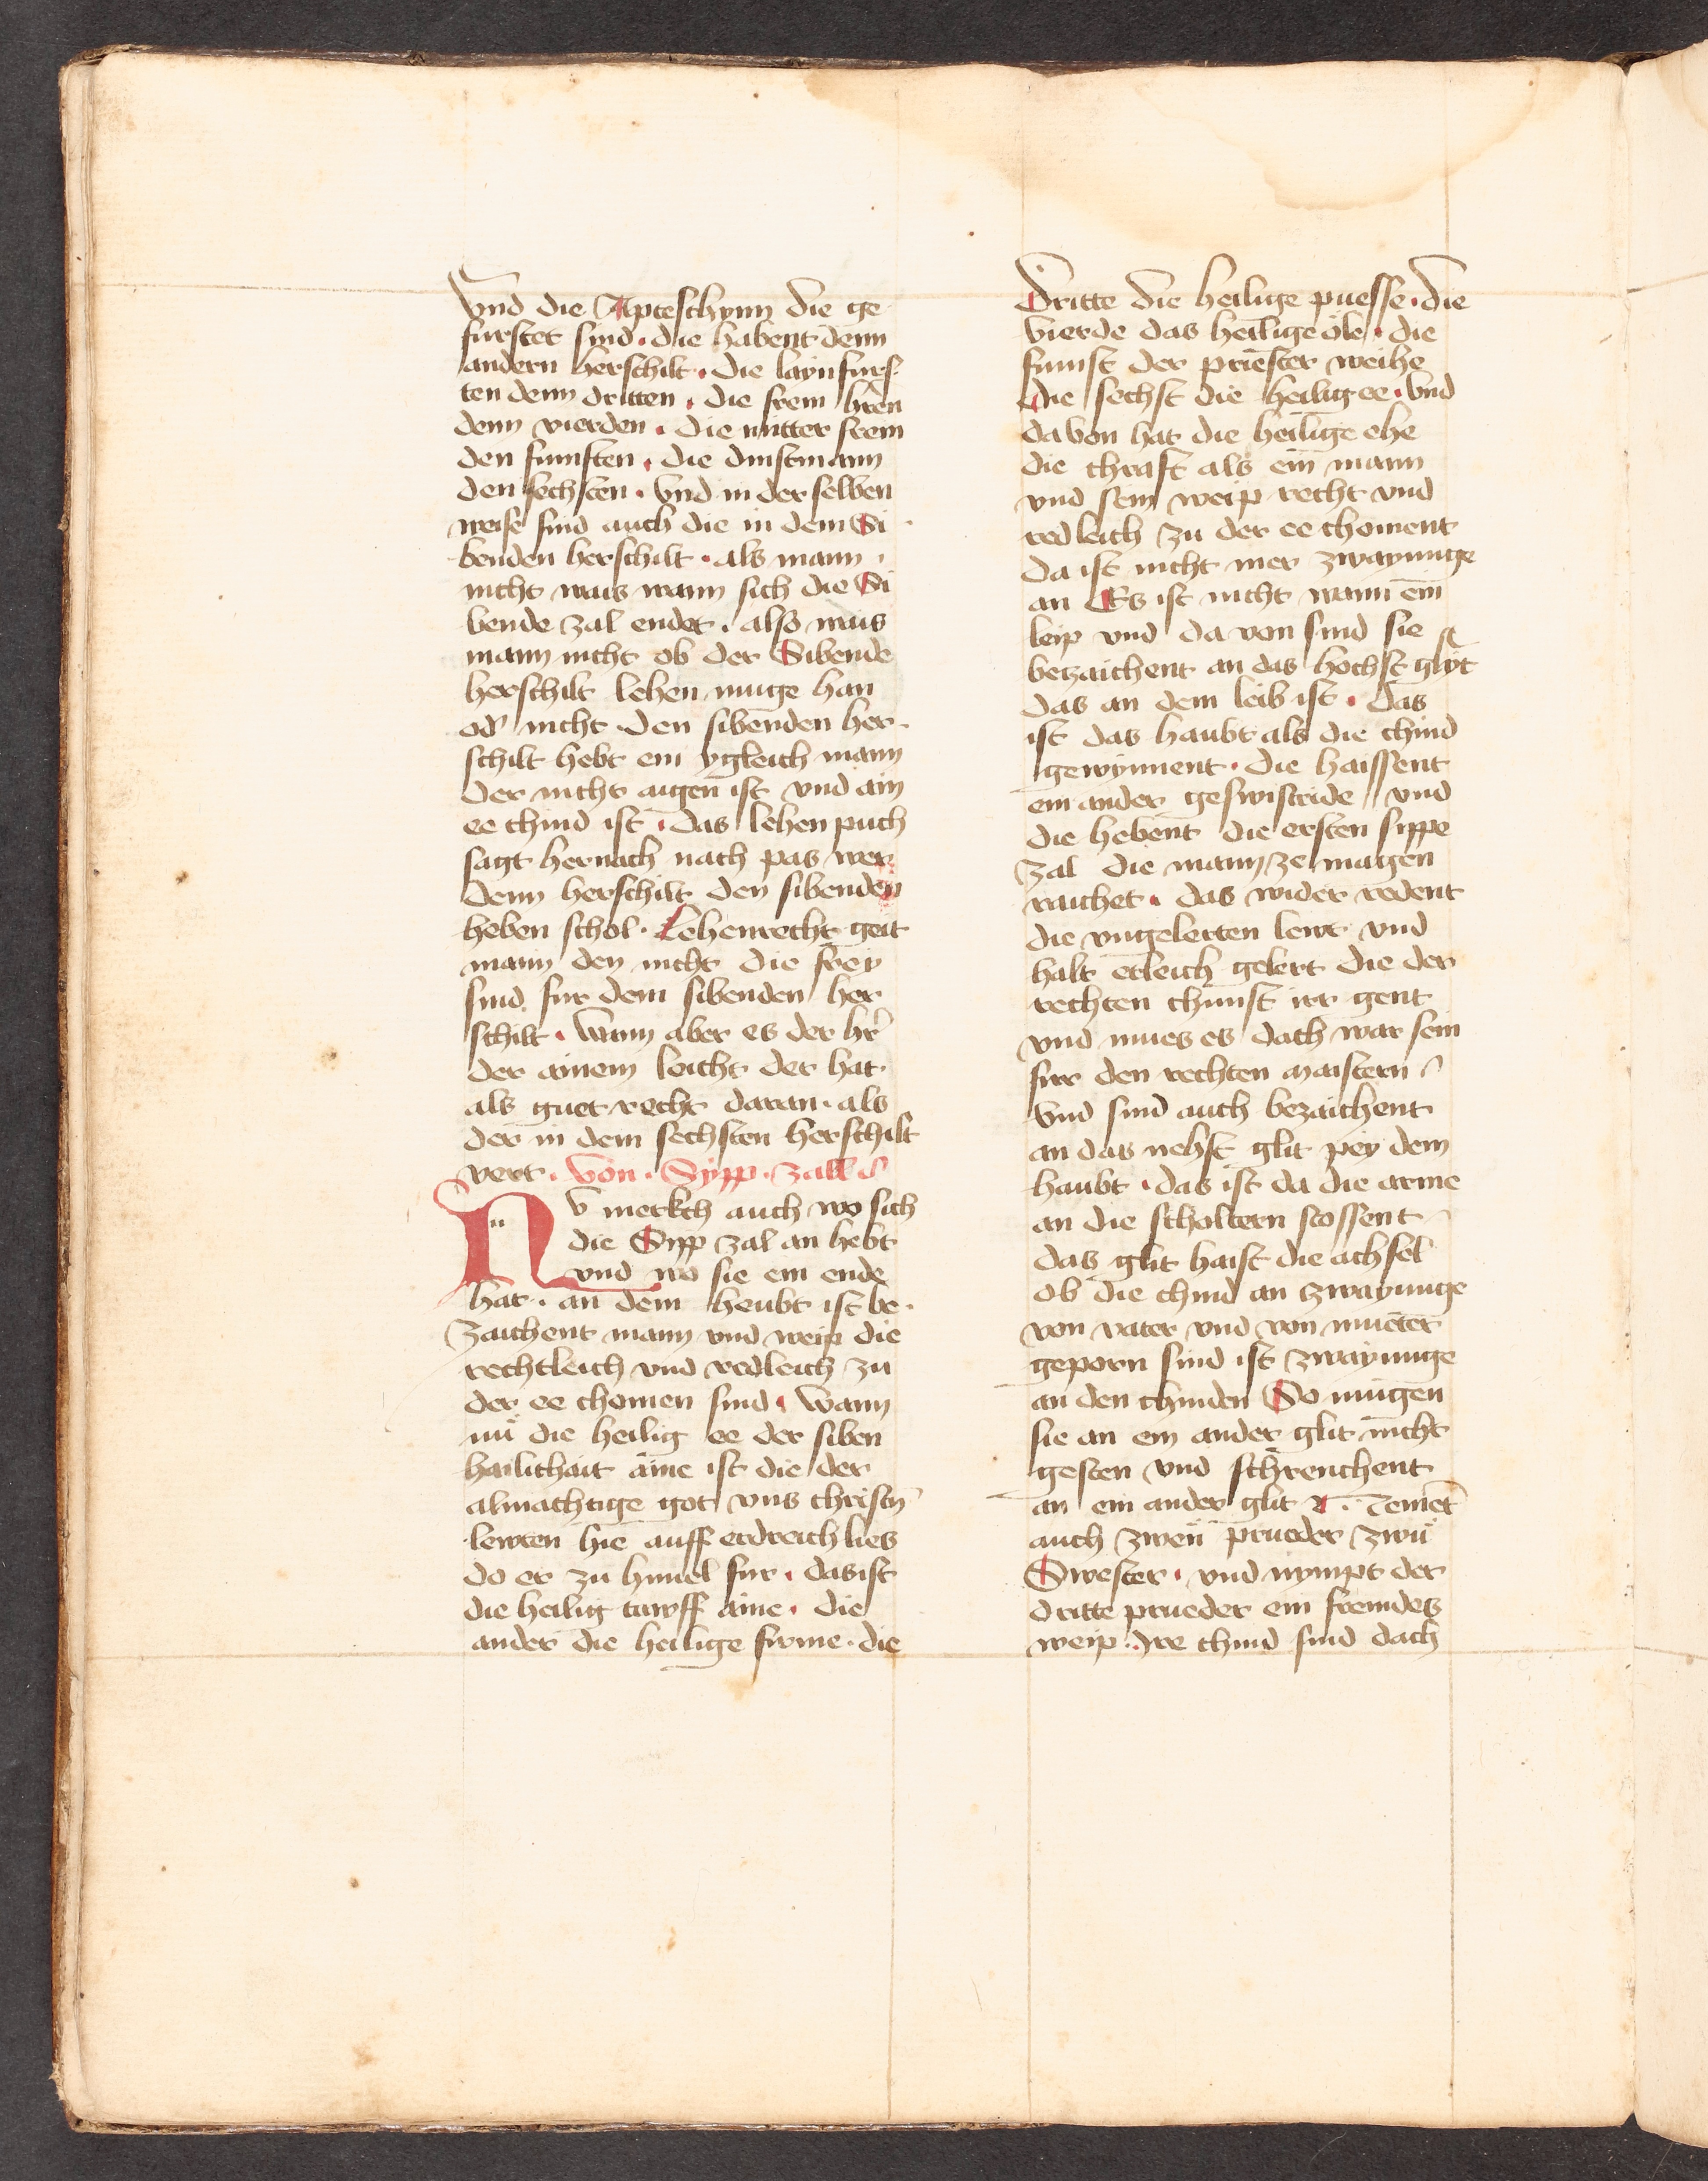 Vnd die Apteschynn die ge
furstet sind · die habent denn
andern herschilt · Die layn furs
ten denn dritten · die frein hren
denn vierden · Die mitter frein
den funften · die dinstmann
den sechsten · Vnd in der selben
weise sind auch die in dem Si
benden herschilt · als mann
nicht wais wann sich die Si
bende zal endet · also wais
mann nicht ob der Sibende
herschilt lehen muge han
od' nicht · den sibenden her
schilt hebt ein ygleich mann
der nicht aigen ist vnd ain
ee chind ist · das lehen puch
sagt hernach nach pas wer
denn herschilt den sibenden
heben schol · Lehenrecht geit
mann den nicht die frey
sind fur dem sibenden her
schilt · Wann aber es der hr'
der ainem leicht der hat
als guet recht daran · als
der in dem sechsten herschilt
vert · Von · Sypp · zall
Nv merkch auch wo sich
die Sypp zal an hebt
vnd wo sie ein ende
hat · an dem heubt ist be
zaichent mann vnd weip die
rechtleich vnd redleich zu
der ee chomen sind · Wann
nü die heilig ee der siben
hailichait aine ist die der
almachtige got vns christn
lewten hie auff erdreich lies
do er zu himel fur · das ist
die heilig tawff aine · die
ander die heilige firme · die
Dritte die heilige puesse · die
vierde das heilige öle · die
funft der priester weihe
die sechst die heilig ee · Vnd
da von hat die heilige ehe
die chraft als ein mann
vnd sein weip recht vnd
redleich zu der ee choment
da ist nicht mer zwayunge
an Es ist nicht wann ein
leip vnd da von sind sie
bezaichent an das hochst glyt
das an dem leib ist · Das
ist das haubt als die chind
gewynnent · Die haissent
ein ander geswistride vnd
die hebent die ersten sippe
zal die mann ze magen
raichet · das wider redent
die vngelerten lewt vnd
halt etleich gelert die der
rechten chunst irr gent
vnd mues es dach war sein
fur den rechten maistern
Vnd sind auch bezaichent
an das nehst glit pey dem
haubt · das ist da die arme
an die scholtern stossent
das glit haist die achsel
ob die chind an zwayunge
von vater vnd von mueter
geporn sind ist zwayunge
an den chinden So mugen
sie an ein ander glit nicht
gesten vnd schrenchent
an ein ander glit · Nemet
auch zwen prueder zwu
Swester · vnd nympt der
dritte prueder ein fremdes
weip · Ire chind sind dach